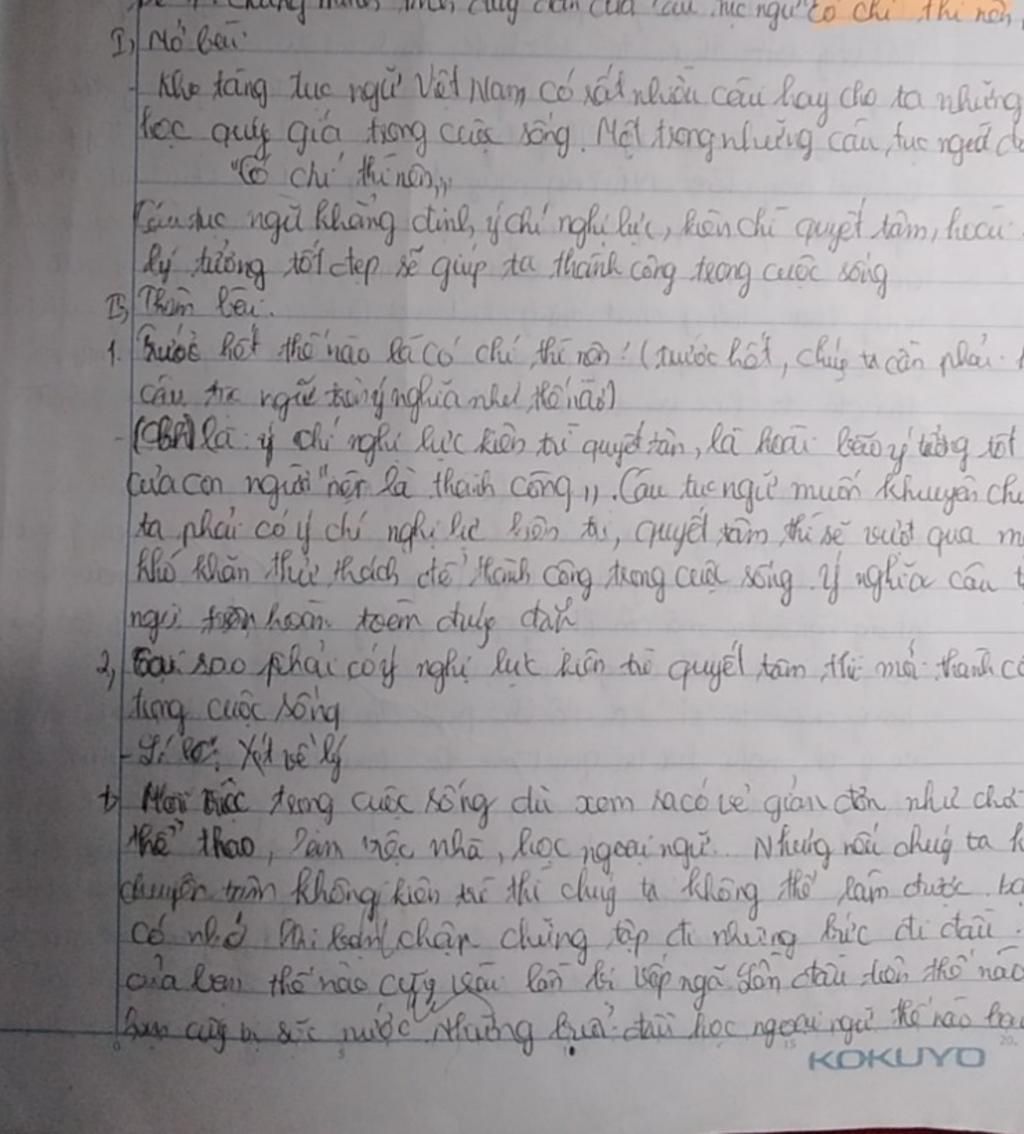 của câu tục ngữ có chí thì nên
I, Mở bài
- Kho tàng tục ngữ Việt Nam có rất nhiều câu hay cho ta những
học quý giá trong cuộc sống. Một trong những câu tục ngữ
"Có chí thì nên"
Câu tục ngữ khẳng định, ý chí nghị lực, kiên chì quyết tâm, hoài
lý tưởng tốt đẹp sẽ giúp ta thành công trong cuộc sống
II, Thân bài.
1. Trước hết thế nào là có chí thì nên! (trước hết, chúng ta cần phải
câu tục ngữ trên ý nghĩa như thế nào)
- là ý chí nghị lực kiên trì quyết tâm, là hoài bão lý tưởng tốt
của con người "nên là thành công". Câu tục ngữ muốn khuyên
ta phải có ý chí nghị lực kiên trì, quyết tâm thì sẽ vượt qua
khó khăn thử thách để thành công trong cuộc sống. Ý nghĩa câu
ngữ trên hoàn toàn đúng đắn
2, Tại sao phải có ý nghị lực kiên trì quyết tâm thì mới thành
trong cuộc sống
- Xét về lý
+ Mọi việc trong cuộc sống dù xem ra có vẻ giản đơn như chơi
thể thao, làm việc nhà, học ngoại ngữ. Nhưng nếu chúng ta
chuyên tâm không kiên trì thì chúng ta không thể làm được.
có nhớ khi chập chững tập đi những bước đi đầu
của bạn thế nào cũng vài lần bị vấp ngã. Lần đầu tiên thế nào
bạn cũng bị sặc nước. Những buổi đầu học ngoại ngữ thế nào
KOKUYO